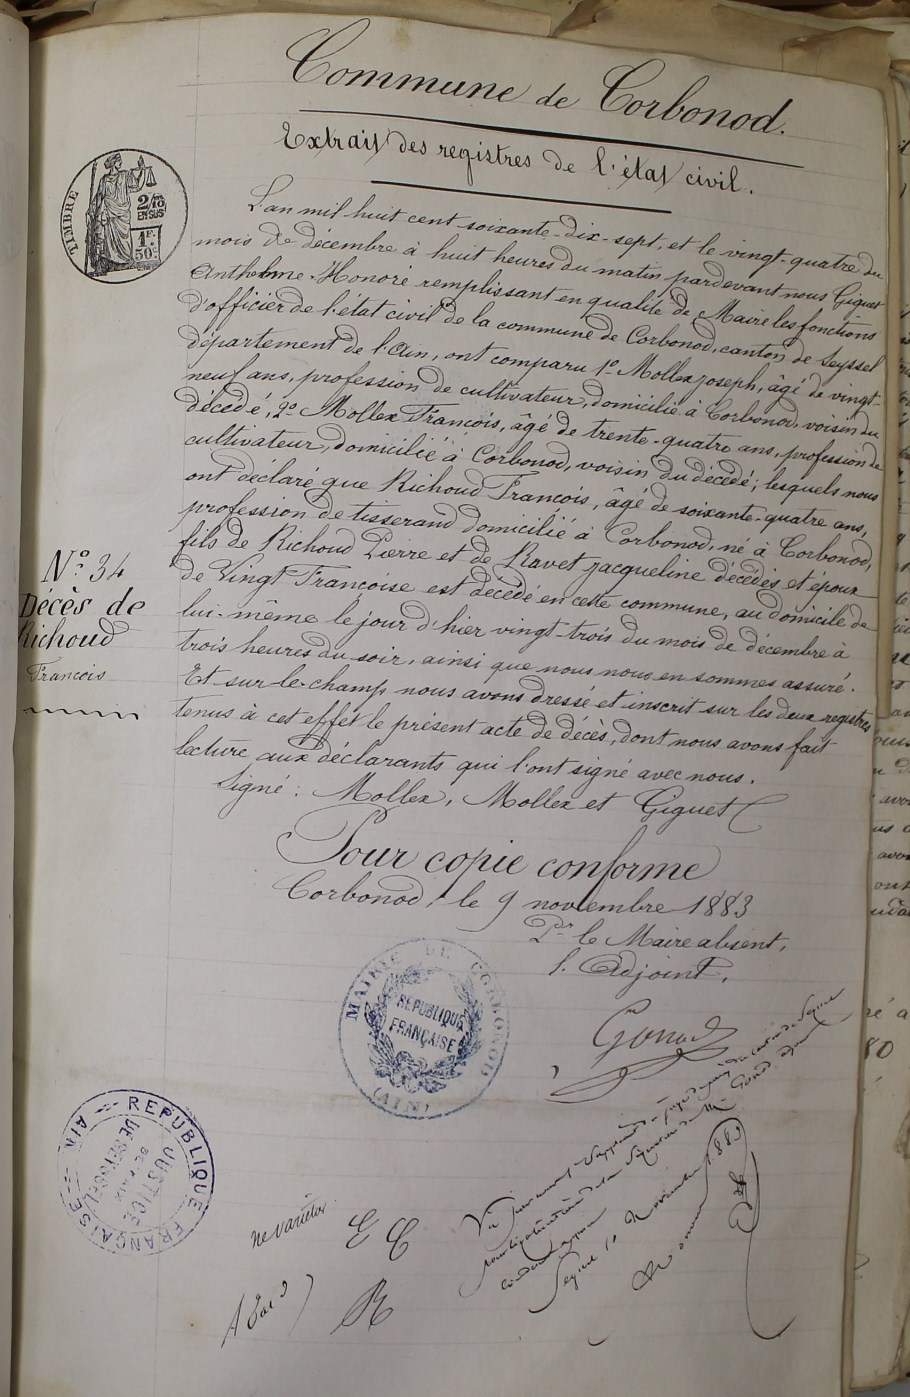 Commune de Corbonod.
Extrait des registres de l'état civil.
TIMBRE
2/10
EN SUS
1F.
50c.
L'an mil huit cent soixante-dix-sept, et le vingt-quatre du
mois de décembre à huit heures du matin pardevant nous Giguet
Anthelme Honoré remplissant en qualité de Maire les fonctions
d'officier de l'état civil de la commune de Corbonod, canton de Seyssel
département de l'Ain, ont comparu 1o Mollex joseph, âgé de vingt-
neuf ans, profession de cultivateur, domicilié à Corbonod, voisin du
décédé, 2o Mollex François, âgé de trente-quatre ans, profession de
cultivateur, domicilié à Corbonod, voisin du décédé; lesquels nous
ont déclaré que Richoud François, âgé de soixante-quatre ans,
profession de tisserand domicilié à Corbonod, né à Corbonod,
fils de Richoud Pierre et de Ravet jacqueline décédés et époux
de Vingt Françoise est décédé en cette commune, au domicile de
lui-même le jour d'hier vingt-trois du mois de décembre à
trois heures du soir, ainsi que nous nous en sommes assuré.
Et sur-le-champ nous avons dressé et inscrit sur les deux registres
tenus à cet effet le présent acte de décès, dont nous avons fait
lecture aux déclarants qui l'ont signé avec nous.
Signé: Mollex, Mollex et Giguet
No. 34
Décès de
Richoud
François
Pour copie conforme
Corbonod, le 9 novembre 1883
Pr le Maire absent,
l'Adjoint,
MAIRIE DE CORBONOD
RÉPUBLIQUE
FRANÇAISE
(AIN)
RÉPUBLIQUE FRANÇAISE
AIN
JUSTICE
DE PAIX
DE SEYSSEL
ne varietur
E C
R